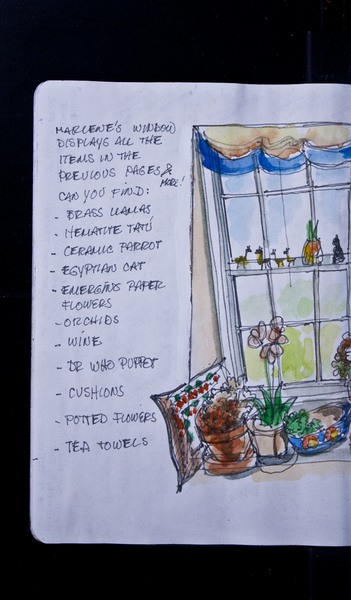 MARLENE'S WINDOW
DISPLAYS ALL THE
ITEMS IN THE
PREVIOUS PAGES &
MORE!
CAN YOU FIND:
- BRASS LLAMAS
- HEMATITE TATÚ
- CERAMIC PARROT
- EGYPTIAN CAT
- EMERGING PAPER
FLOWERS
- ORCHIDS
- WINE
- DR WHO PUPPET
- CUSHIONS
- POTTED FLOWERS
- TEA TOWELS